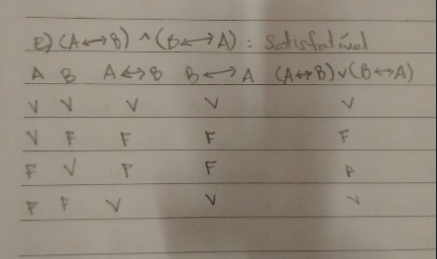 E) (A↔B) ^ (B↔A) : Satisfatível
A B A↔B B↔A (A↔B)∨(B↔A)
V V V V V
V F F F F
F V F F F
F F V V V